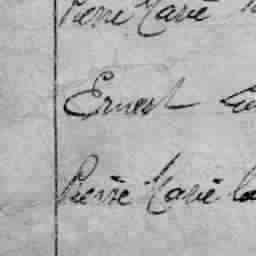 Pierre Marie
Ernest
Pierre Marie